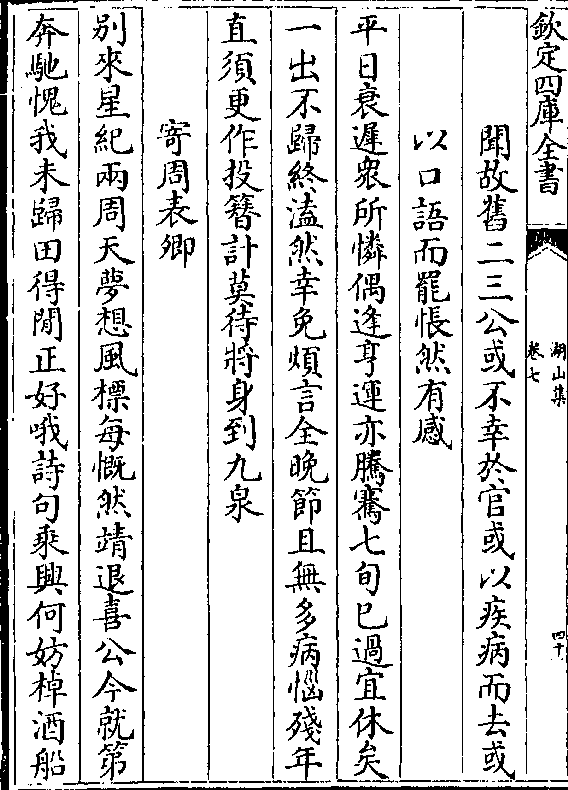 欽定四庫全書
湖山集
卷七
四十
聞故舊二三公或不幸於官或以疾病而去或
以口語而罷悵然有感
平日衰遲衆所憐偶逢亨運亦騰騫七旬已過宜休矣
一出不歸終溘然幸免煩言全晚節且無多病惱殘年
直須更作投簪計莫待將身到九泉
寄周表卿
別來星紀兩周天夢想風標每慨然靖退喜公今就第
奔馳愧我未歸田得閒正好哦詩句乘興何妨棹酒船